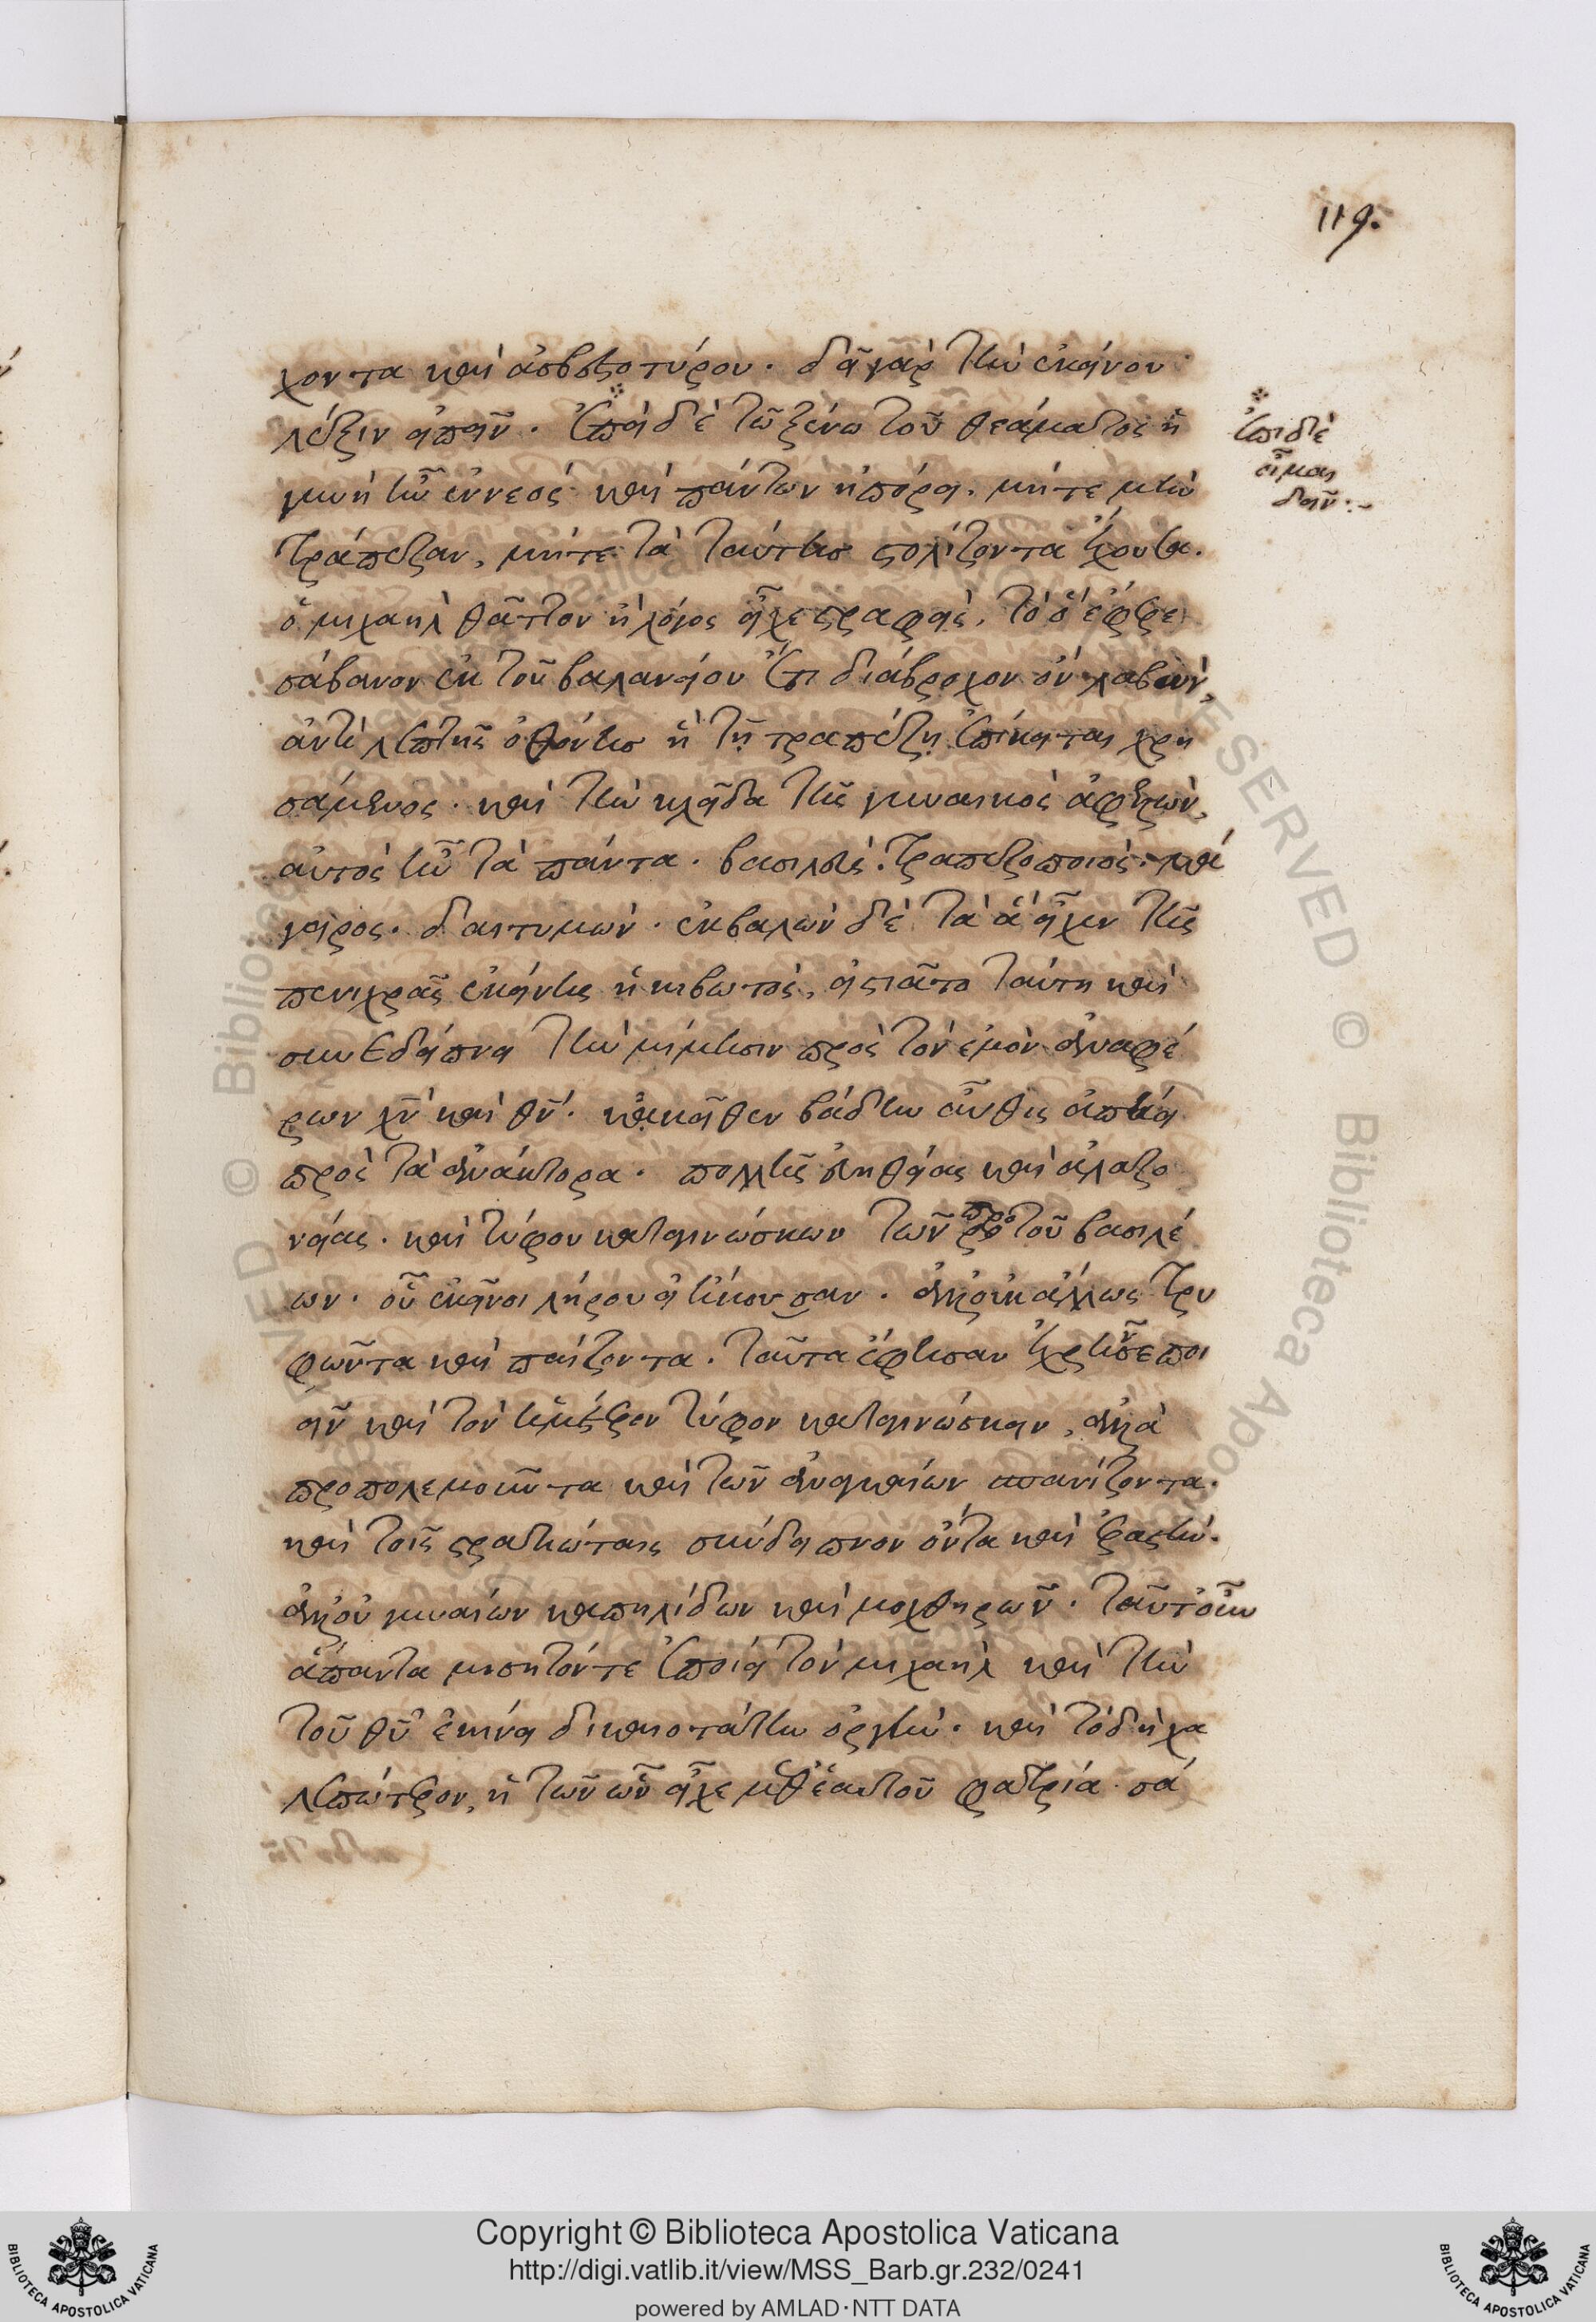 119.
χοντα καὶ ἀσβεστοτύρου. δεῖ γὰρ τὴν ἐκείνου
λέξιν εἰπεῖν. ἐπεὶ δὲ τῶ ξένω τοῦ θεάματος ἡ
γυνὴ ἦν ἐννεός καὶ πάντων ἠπόρει. μήτε μὴν
τράπεζαν, μήτε τὰ ταύτην στολίζοντα ἔχουσα.
ὁ μιχαὴλ θᾶττον ἢ λόγος εἶχε στραφεὶς, τὸ ὃ ἔφερε
σάβανον ἐκ τοῦ βαλανείου ἔτι διάβροχον ὂν λαβὼν,
ἀντὶ λεπτῆς ὀθόνης ἣ τῆ τραπέζη ἐπίκειται χρη
σάμενος. καὶ τὴν κλεῖδα τῆς γυναικὸς ἀφελὼν,
αὐτὸς ἦν τὰ πάντα. βασιλεὺς. τραπεζοποιὸς. μά
γειρος. δαιτυμών. ἐκβαλὼν δὲ τὰ ἃ εἶχεν τῆς
πενιχρᾶς ἐκείνης ἡ κιβωτὸς, εἱστιᾶτο ταύτη καὶ
συνεδείπνει τὴν μίμησιν πρὸς τὸν ἐμὸν ἀναφέ
ρων χν καὶ θν. κἀκεῖθεν βάδην αὖθις ἀπήει
πρὸς τὰ ἀνάκτορα. πολλῆς εὐηθείας καὶ ἀλαζο
νείας. καὶ τύφου καταγινώσκων τῶν προ τοῦ βασιλέ
ων. οὓς ἐκεῖνοι λήρου εἰσήκουσαν. ἀλλ' οὐκ ἄλλως τρυ
φῶντα καὶ παίζοντα. ταῦτα ἔφησαν ἐχρῆν σε ποι
εῖν καὶ τὸν ἡμέτερον τύφον καταγινώσκειν, ἀλλὰ
προπολεμοῦντα καὶ τῶν ἀναγκαίων σπανίζοντα.
καὶ τοῖς στρατιώταις σύνδειπνον ὄντα καὶ ἐραστήν.
ἀλλ' οὐ γυναίων καπηλίδων καὶ μοχθηρῶν. ταῦτ' οὖν
ἅπαντα μισητόν τε ἐποίει τὸν μιχαὴλ καὶ τὴν
τοῦ θυ ἐκίνει δικαιοτάτην ὀργήν. καὶ τὸ δὴ χα
λεπώτερον, ἡ τῶν ὧν εἶχε μεθ' ἑαυτοῦ φατρία σά
ἐπὶ δὲ
εἶμαι
δεῖν:~
Copyright © Biblioteca Apostolica Vaticana
http://digi.vatlib.it/view/MSS_Barb.gr.232/0241
powered by AMLAD·NTT DATA
BIBLIOTECA APOSTOLICA VATICANA
BIBLIOTECA APOSTOLICA VATICANA